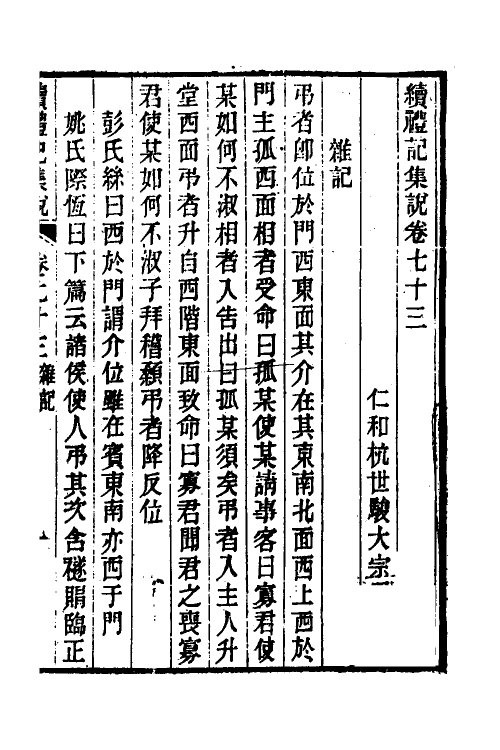 續禮記集說卷七十三
仁和杭世駿大宗
雜記
弔者卽位於門西東面其介在其東南北面西上西於
門主孤西面相者受命曰孤某使某請事客曰寡君使
某如何不淑相者入告出曰孤某須矣弔者入主人升
堂西面弔者升自西階東面致命曰寡君聞君之喪寡
君使某如何不淑子拜稽顙弔者降反位
彭氏絲曰西於門謂介位雖在賓東南亦西于門
姚氏際恆曰下篇云諸侯使人弔其次含襚賵臨正
續禮記集說 卷七十三 雜記